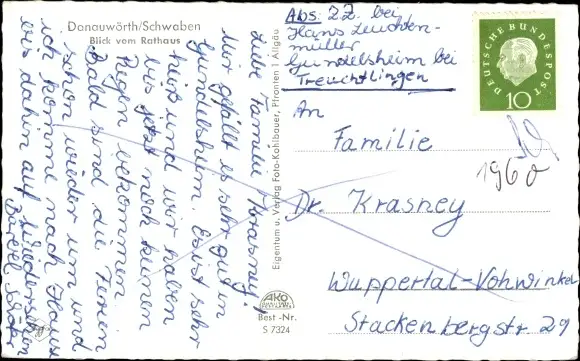 Donauwörth/Schwaben
Blick vom Rathaus
Liebe Familie Krasney!
Mir gefällt es sehr gut in
Gundelsheim. Es ist sehr
heiß und wir haben
bis jetzt noch keinen
Regen bekommen.
Bald sind die Ferien
schon wieder um und
ich komme nach Hause
bis dahin auf Wiedersehen
Eigentum u. Verlag Foto-Kohlbauer, Pfronten 1 Allgäu
AKO
Best.-Nr.
S 7324
Abs. ZZ. bei
Hans Leuchten-
müller
Gundelsheim bei
Treuchtlingen
DEUTSCHE BUNDESPOST
10
1960
An
Familie
Dr. Krasney
Wuppertal-Vohwinkel
Stackenbergstr. 29